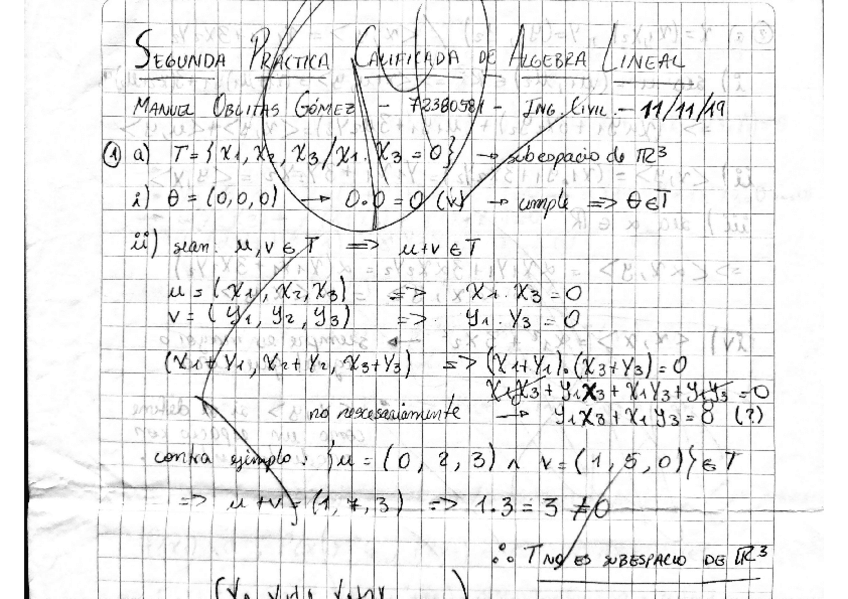 SEGUNDA PRÁCTICA CALIFICADA DE ALGEBRA LINEAL
MANUEL OBLITAS GÓMEZ - 72380581 - ING. CIVIL - 11/11/19
① a) T = {X1, X2, X3 / X1 . X3 = 0} → subespacio de ℝ3
i) θ = (0,0,0) → 0.0 = 0 (v) → cumple => θ∈T
ii) sean: u,v ∈ T => u+v ∈ T
u = (X1, X2, X3) => X1 . X3 = 0
v = (Y1, Y2, Y3) => Y1 . Y3 = 0
(X1+Y1, X2+Y2, X3+Y3) => (X1+Y1).(X3+Y3) = 0
X1X3 + Y1X3 + X1Y3 + Y1Y3 = 0
no nescesariamente → Y1X3 + X1Y3 = 0 (?)
contra ejemplo: {u = (0, 2, 3) ∧ v = (1, 5, 0)} ∈ T
=> u+v = (1, 7, 3) => 1.3 = 3 ≠ 0
∴ T NO ES SUBESPACIO DE ℝ3